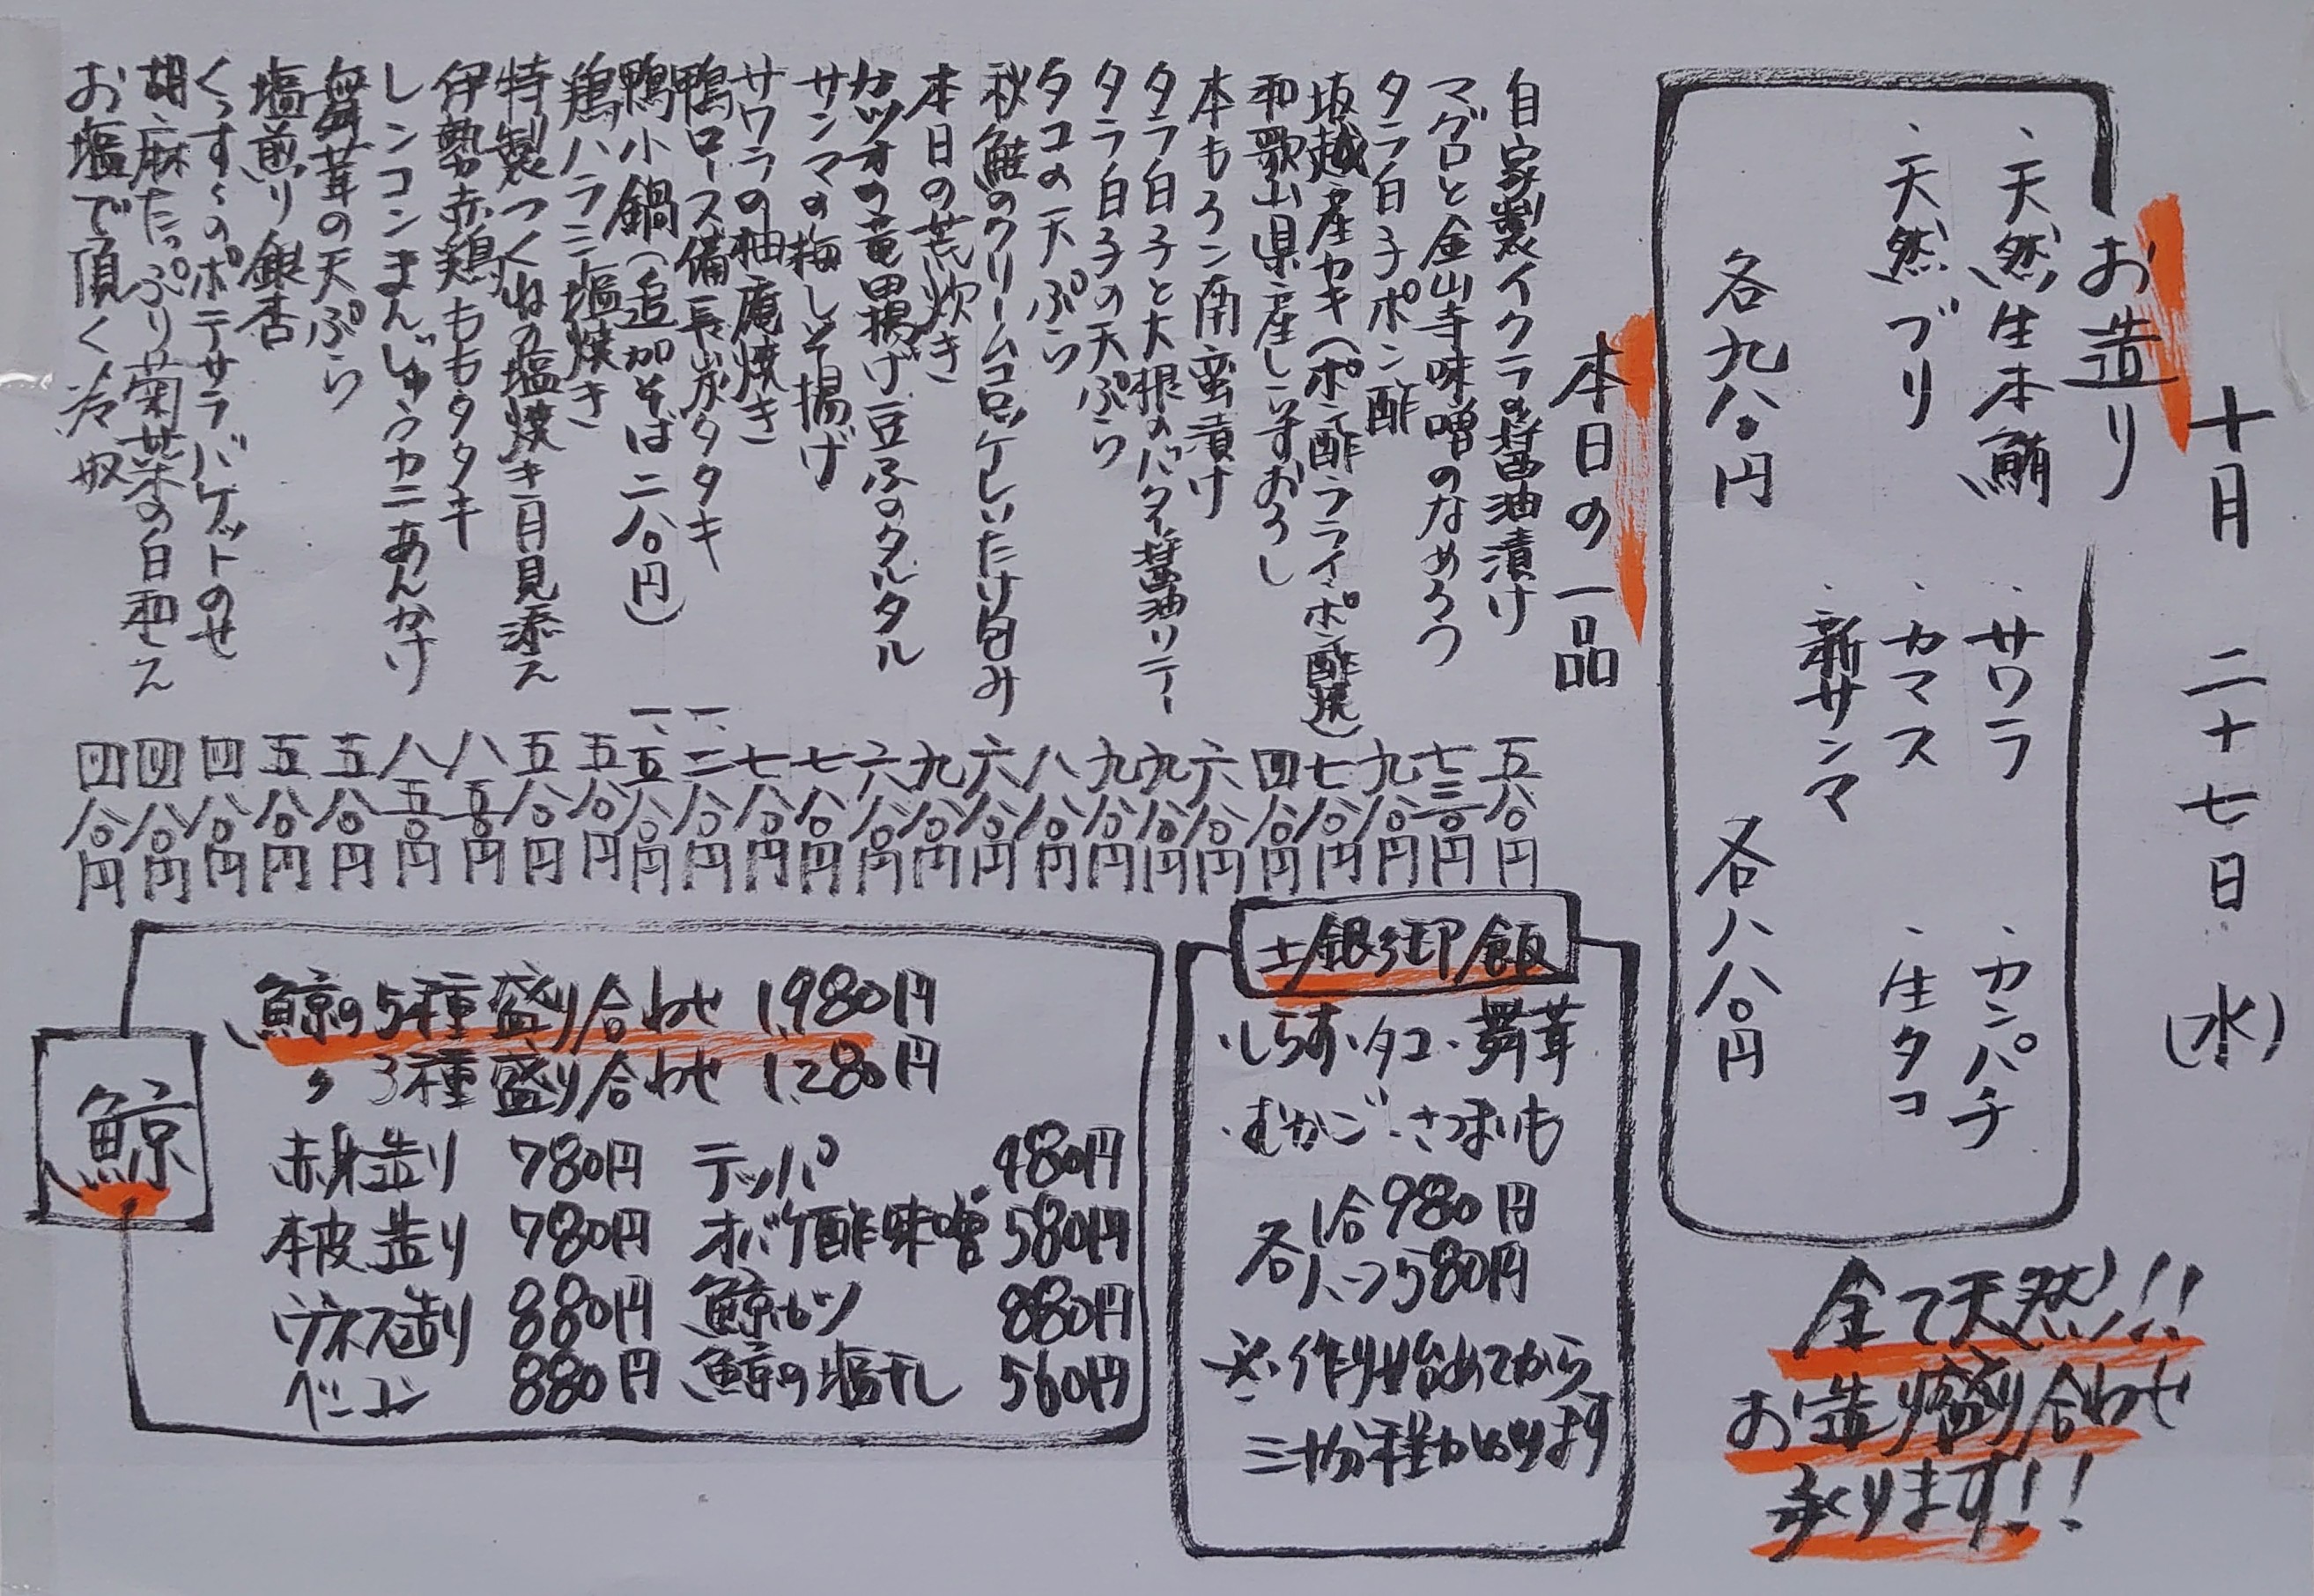 十月 二十七日（水）
お造り
・天然生本鮪 ・サワラ ・カンパチ
・天然ブリ ・カマス ・生タコ
・新サンマ
各九八〇円 各八八〇円
全て天然!!
お造り盛り合わせ
承ります!!
本日の一品
自家製イクラの醤油漬け 五八〇円
マグロと金山寺味噌のなめろう 七三〇円
タラ白子ポン酢 九八〇円
坂越産カキ（ポン酢・フライ・ポン酢焼） 七八〇円
和歌山県産しらすおろし 四八〇円
本もろこ南蛮漬け 六八〇円
タラ白子と大根のバター醤油ソテー 九八〇円
タラ白子の天ぷら 九八〇円
タコの天ぷら 八八〇円
秋鮭のクリームコロッケしいたけ包み 六八〇円
本日の荒炊き 九八〇円
カツオの竜田揚げ豆ふのタルタル 六八〇円
サンマの梅しそ揚げ 七八〇円
サワラの柚庵焼き 七八〇円
鴨ロース備長炭タタキ 一、二八〇円
鴨小鍋（追加そば二八〇円） 一、五八〇円
鶏ハラミ塩焼き 五八〇円
特製つくねの塩焼き月見添え 五八〇円
伊勢赤鶏ももタタキ 八五〇円
レンコンまんじゅうカニあんかけ 八五〇円
舞茸の天ぷら 五八〇円
塩煎り銀杏 五八〇円
くっすくのポテサラバゲットのせ 四八〇円
胡麻たっぷり菊菜の白和え 四八〇円
お塩で頂く冷奴 四八〇円
土鍋御飯
・しらす・タコ・舞茸
・むかご・さつまいも
各 1合980円
ハーフ580円
※作り始めてから
三十分程かかります
鯨
鯨の5種盛り合わせ 1,980円
〃 3種盛り合わせ 1,280円
赤身造り 780円 テッパ 480円
本皮造り 780円 オバケ酢味噌 580円
ウネス造り 880円 鯨カツ 880円
ベーコン 880円 鯨の塩干し 560円